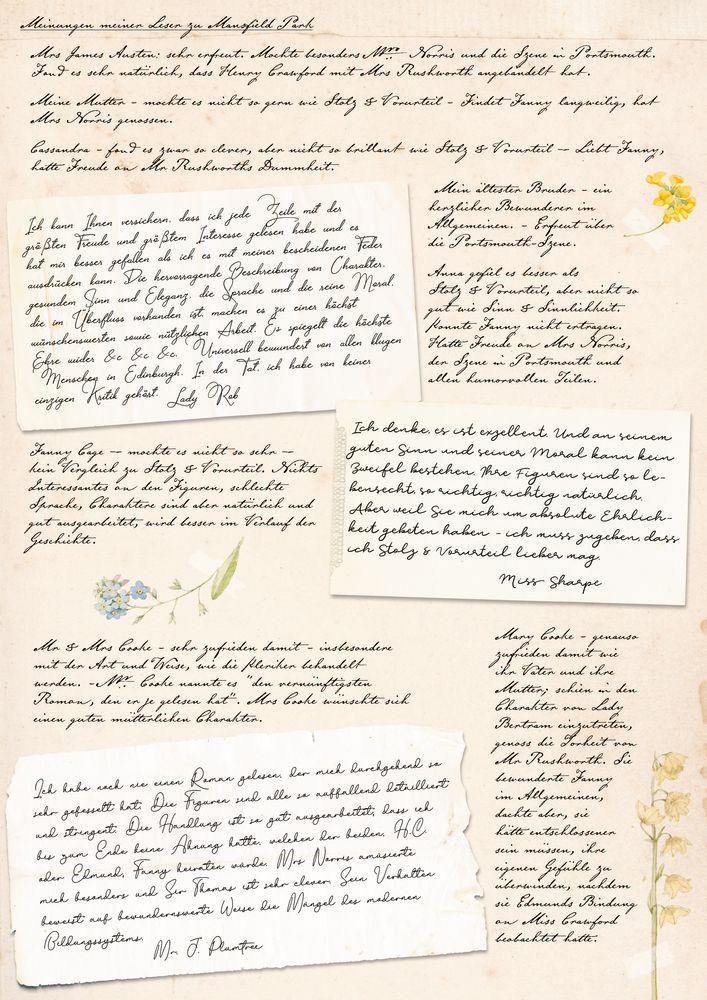 Meinungen meiner Leser zu Mansfield Park
Mrs James Austen: sehr erfreut. Mochte besonders Mrs. Norris und die Szene in Portsmouth.
Fand es sehr natürlich, dass Henry Crawford mit Mrs Rushworth angebandelt hat.
Meine Mutter - mochte es nicht so gern wie Stolz & Vorurteil - Findet Fanny langweilig, hat
Mrs Norris genossen.
Cassandra - fand es zwar so clever, aber nicht so brillant wie Stolz & Vorurteil — Liebt Fanny,
hatte Freude an Mr Rushworths Dummheit.
Ich kann Ihnen versichern, dass ich jede Zeile mit der
größten Freude und größtem Interesse gelesen habe und es
hat mir besser gefallen als ich es mit meiner bescheidenen Feder
ausdrücken kann. Die hervorragende Beschreibung von Charakter,
gesundem Sinn und Eleganz, die Sprache und die reine Moral,
die im Überfluss vorhanden ist, machen es zu einer höchst
wünschenswerten sowie nützlichen Arbeit. Es spiegelt die höchste
Ehre wider &c &c &c. Universell bewundert von allen klugen
Menschen in Edinburgh. In der Tat, ich habe von keiner
einzigen Kritik gehört. Lady Rob
Mein ältester Bruder - ein
herzlicher Bewunderer im
Allgemeinen. - Erfreut über
die Portsmouth-Szene.
Anna gefiel es besser als
Stolz & Vorurteil, aber nicht so
gut wie Sinn & Sinnlichkeit.
Konnte Fanny nicht ertragen.
Hatte Freude an Mrs Norris,
der Szene in Portsmouth und
allen humorvollen Teilen.
Ich denke, es ist exzellent. Und an seinem
guten Sinn und seiner Moral kann kein
Zweifel bestehen. Ihre Figuren sind so le-
bensecht, so richtig, richtig natürlich.
Aber weil Sie mich um absolute Ehrlich-
keit gebeten haben - ich muss zugeben, dass
ich Stolz & Vorurteil lieber mag.
Miss Sharpe
Fanny Cage — mochte es nicht so sehr —
kein Vergleich zu Stolz & Vorurteil. Nichts
Interessantes an den Figuren, schlechte
Sprache, Charaktere sind aber natürlich und
gut ausgearbeitet, wird besser im Verlauf der
Geschichte.
Mr & Mrs Cooke - sehr zufrieden damit - insbesondere
mit der Art und Weise, wie die Kleriker behandelt
werden. - Mr. Cooke nannte es "den vernünftigsten
Roman, den er je gelesen hat". Mrs Cooke wünschte sich
einen guten mütterlichen Charakter.
Mary Cooke - genauso
zufrieden damit wie
ihr Vater und ihre
Mutter; schien in den
Charakter von Lady
Bertram einzutreten,
genoss die Torheit von
Mr Rushworth. Sie
bewunderte Fanny
im Allgemeinen,
dachte aber, sie
hätte entschlossener
sein müssen, ihre
eigenen Gefühle zu
überwinden, nachdem
sie Edmunds Bindung
an Miss Crawford
beobachtet hatte.
Ich habe noch nie einen Roman gelesen, der mich durchgehend so
sehr gefesselt hat. Die Figuren sind alle so auffallend detailliert
und stringent. Die Handlung ist so gut ausgearbeitet, dass ich
bis zum Ende keine Ahnung hatte, welchen der beiden, H.C.
oder Edmund, Fanny heiraten würde. Mrs Norris amüsierte
mich besonders und Sir Thomas ist sehr clever. Sein Verhalten
beweist auf bewundernswerte Weise die Mängel des modernen
Bildungssystems.
Mr. J. Plumtree